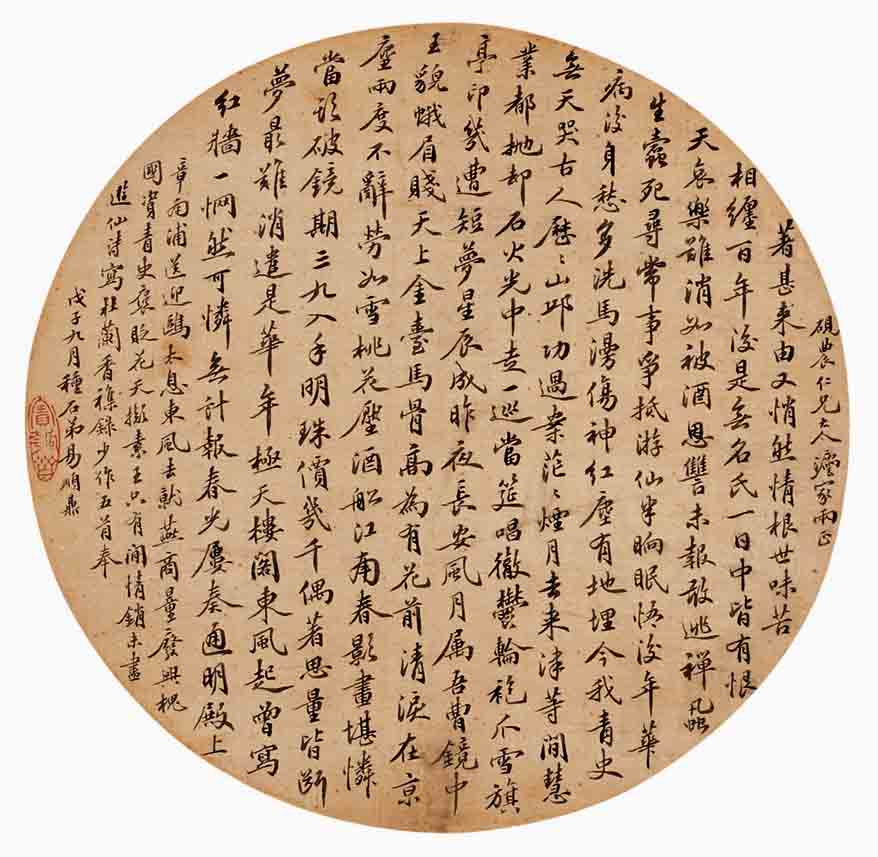 硯農仁兄大人灋家兩正
著甚来由又悄然情根世味苦
相纏百年後是無名氏一日中皆有恨
天哀樂難消如被酒恩讐未報敢逃禪
生蠹死尋常事爭抵游仙半晌眠悟後年華
病後身愁多洗馬漫傷神紅塵有地埋今我青史
無天哭古人歷〻山邱功過案茫〻煙月去来津等閒慧
業都抛却石火光中走一巡當筵唱徹鬱輪袍爪雪旗
亭印幾遭短夢星辰成昨夜長安風月屬吾曹鏡中
玉貌蛾眉賤天上金臺馬骨高為有花前清淚在京
塵兩度不辭勞如雪桃花壓酒船江南春影畫堪憐
當頭破鏡期三九入手明珠價幾千偶著思量皆斷
夢最難消遣是華年極天樓閣東風起曾寫
紅牆一惘然可憐無計報春光屢奏通明殿上
章南浦送迎鷗太息東風去就燕商量廢興槐
國資青史褒貶花天擬素王只有閒情銷未盡
遊仙詩寫杜蘭香襍錄少作五首奉
戊子九月種石弟易順鼎